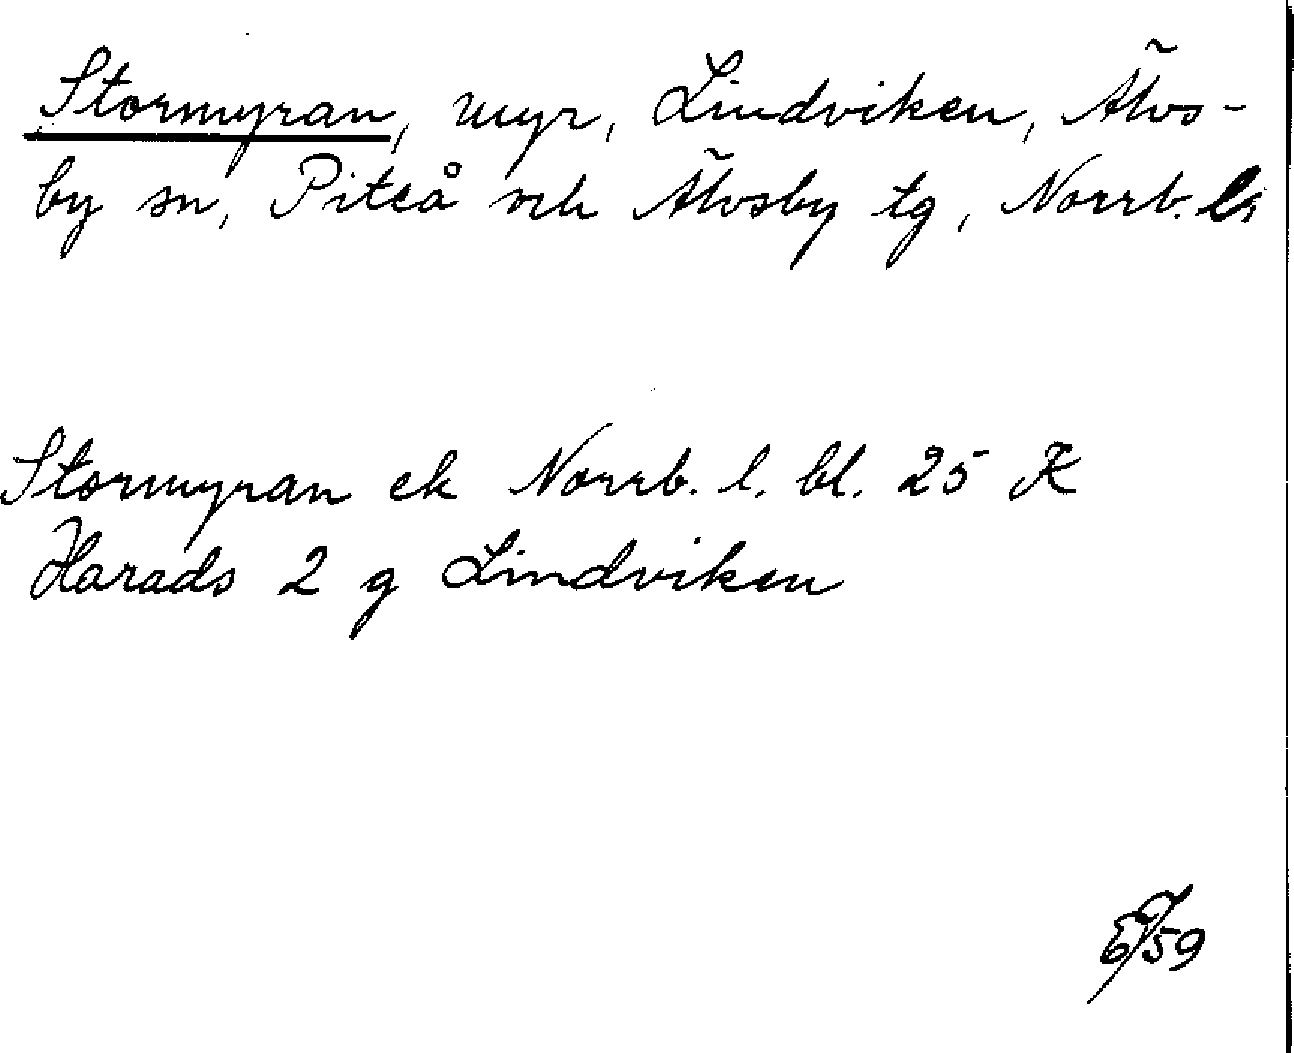 Stormyran, myr, Lindviken, Älvs-
by sn, Piteå och Älvsby tg, Norrb. l.
Stormyran ek Norrb. l. bl. 25 K
Harads 2 g Lindviken
59